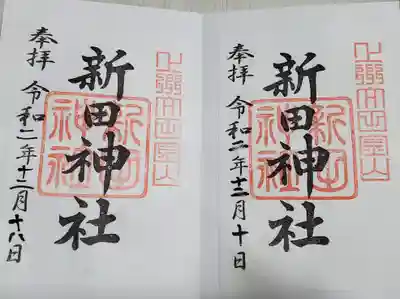 奉拝
新田神社
新田神社
令和二年十二月十八日
奉拝
新田神社
新田神社
令和二年十二月十日